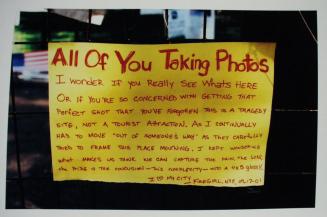 All Of You Taking Photos
I wonder If you Really See Whats Here
Or if you're so concerned with Getting that
Perfect Shot that you've forgotten this is a tragedy
site, not a tourist attraction. As I continually
had to move "out of someone's way" as they carefully
tried to frame this place mourning, I kept wondering
what makes us think we can capture the pain, the loss,
the pride & the confusion - this complexity - into a 4x5 glossy.
I ♥ My City
Firegirl, NYC, 09.17.01